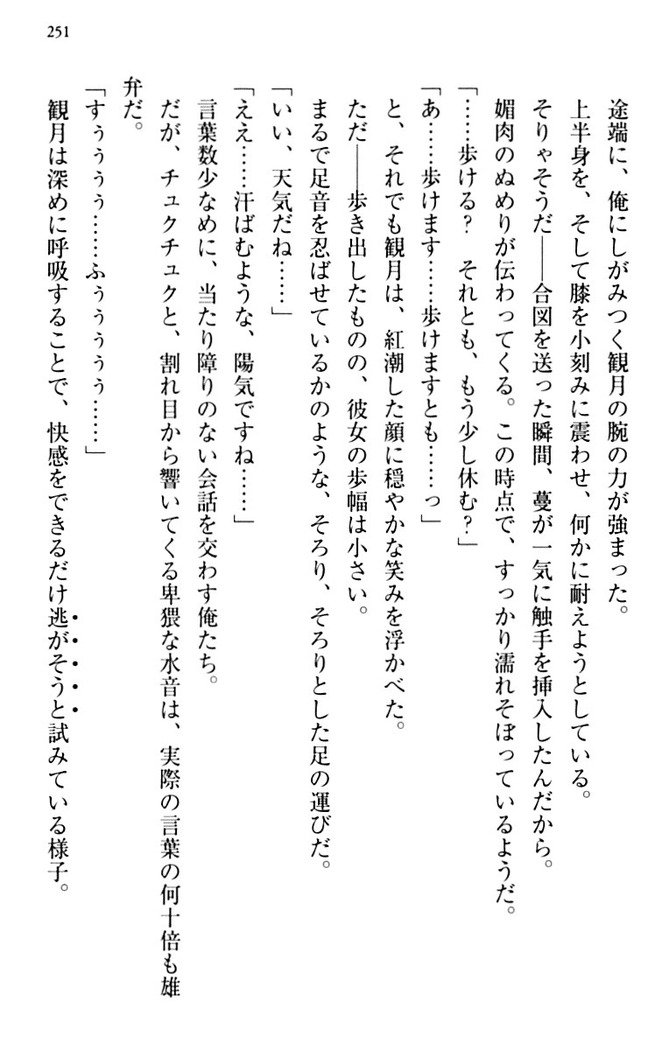 251
途端に、俺にしがみつく観月の腕の力が強まった。
上半身を、そして膝を小刻みに震わせ、何かに耐えようとしている。
そりゃそうだ――合図を送った瞬間、蔓が一気に触手を挿入したんだから。
媚肉のぬめりが伝わってくる。この時点で、すっかり濡れそぼっているようだ。
「……歩ける？　それとも、もう少し休む？」
「あ……歩けます……歩けますとも……っ」
と、それでも観月は、紅潮した顔に穏やかな笑みを浮かべた。
ただ――歩き出したものの、彼女の歩幅は小さい。
まるで足音を忍ばせているかのような、そろり、そろりとした足の運びだ。
「いい、天気だね……」
「ええ……汗ばむような、陽気ですね……」
言葉数少なめに、当たり障りのない会話を交わす俺たち。
だが、チュクチュクと、割れ目から響いてくる卑猥な水音は、実際の言葉の何十倍も雄
弁だ。
「すぅぅぅぅ……ふぅぅぅぅぅ……」
観月は深めに呼吸することで、快感をできるだけ逃がそうと試みている様子。